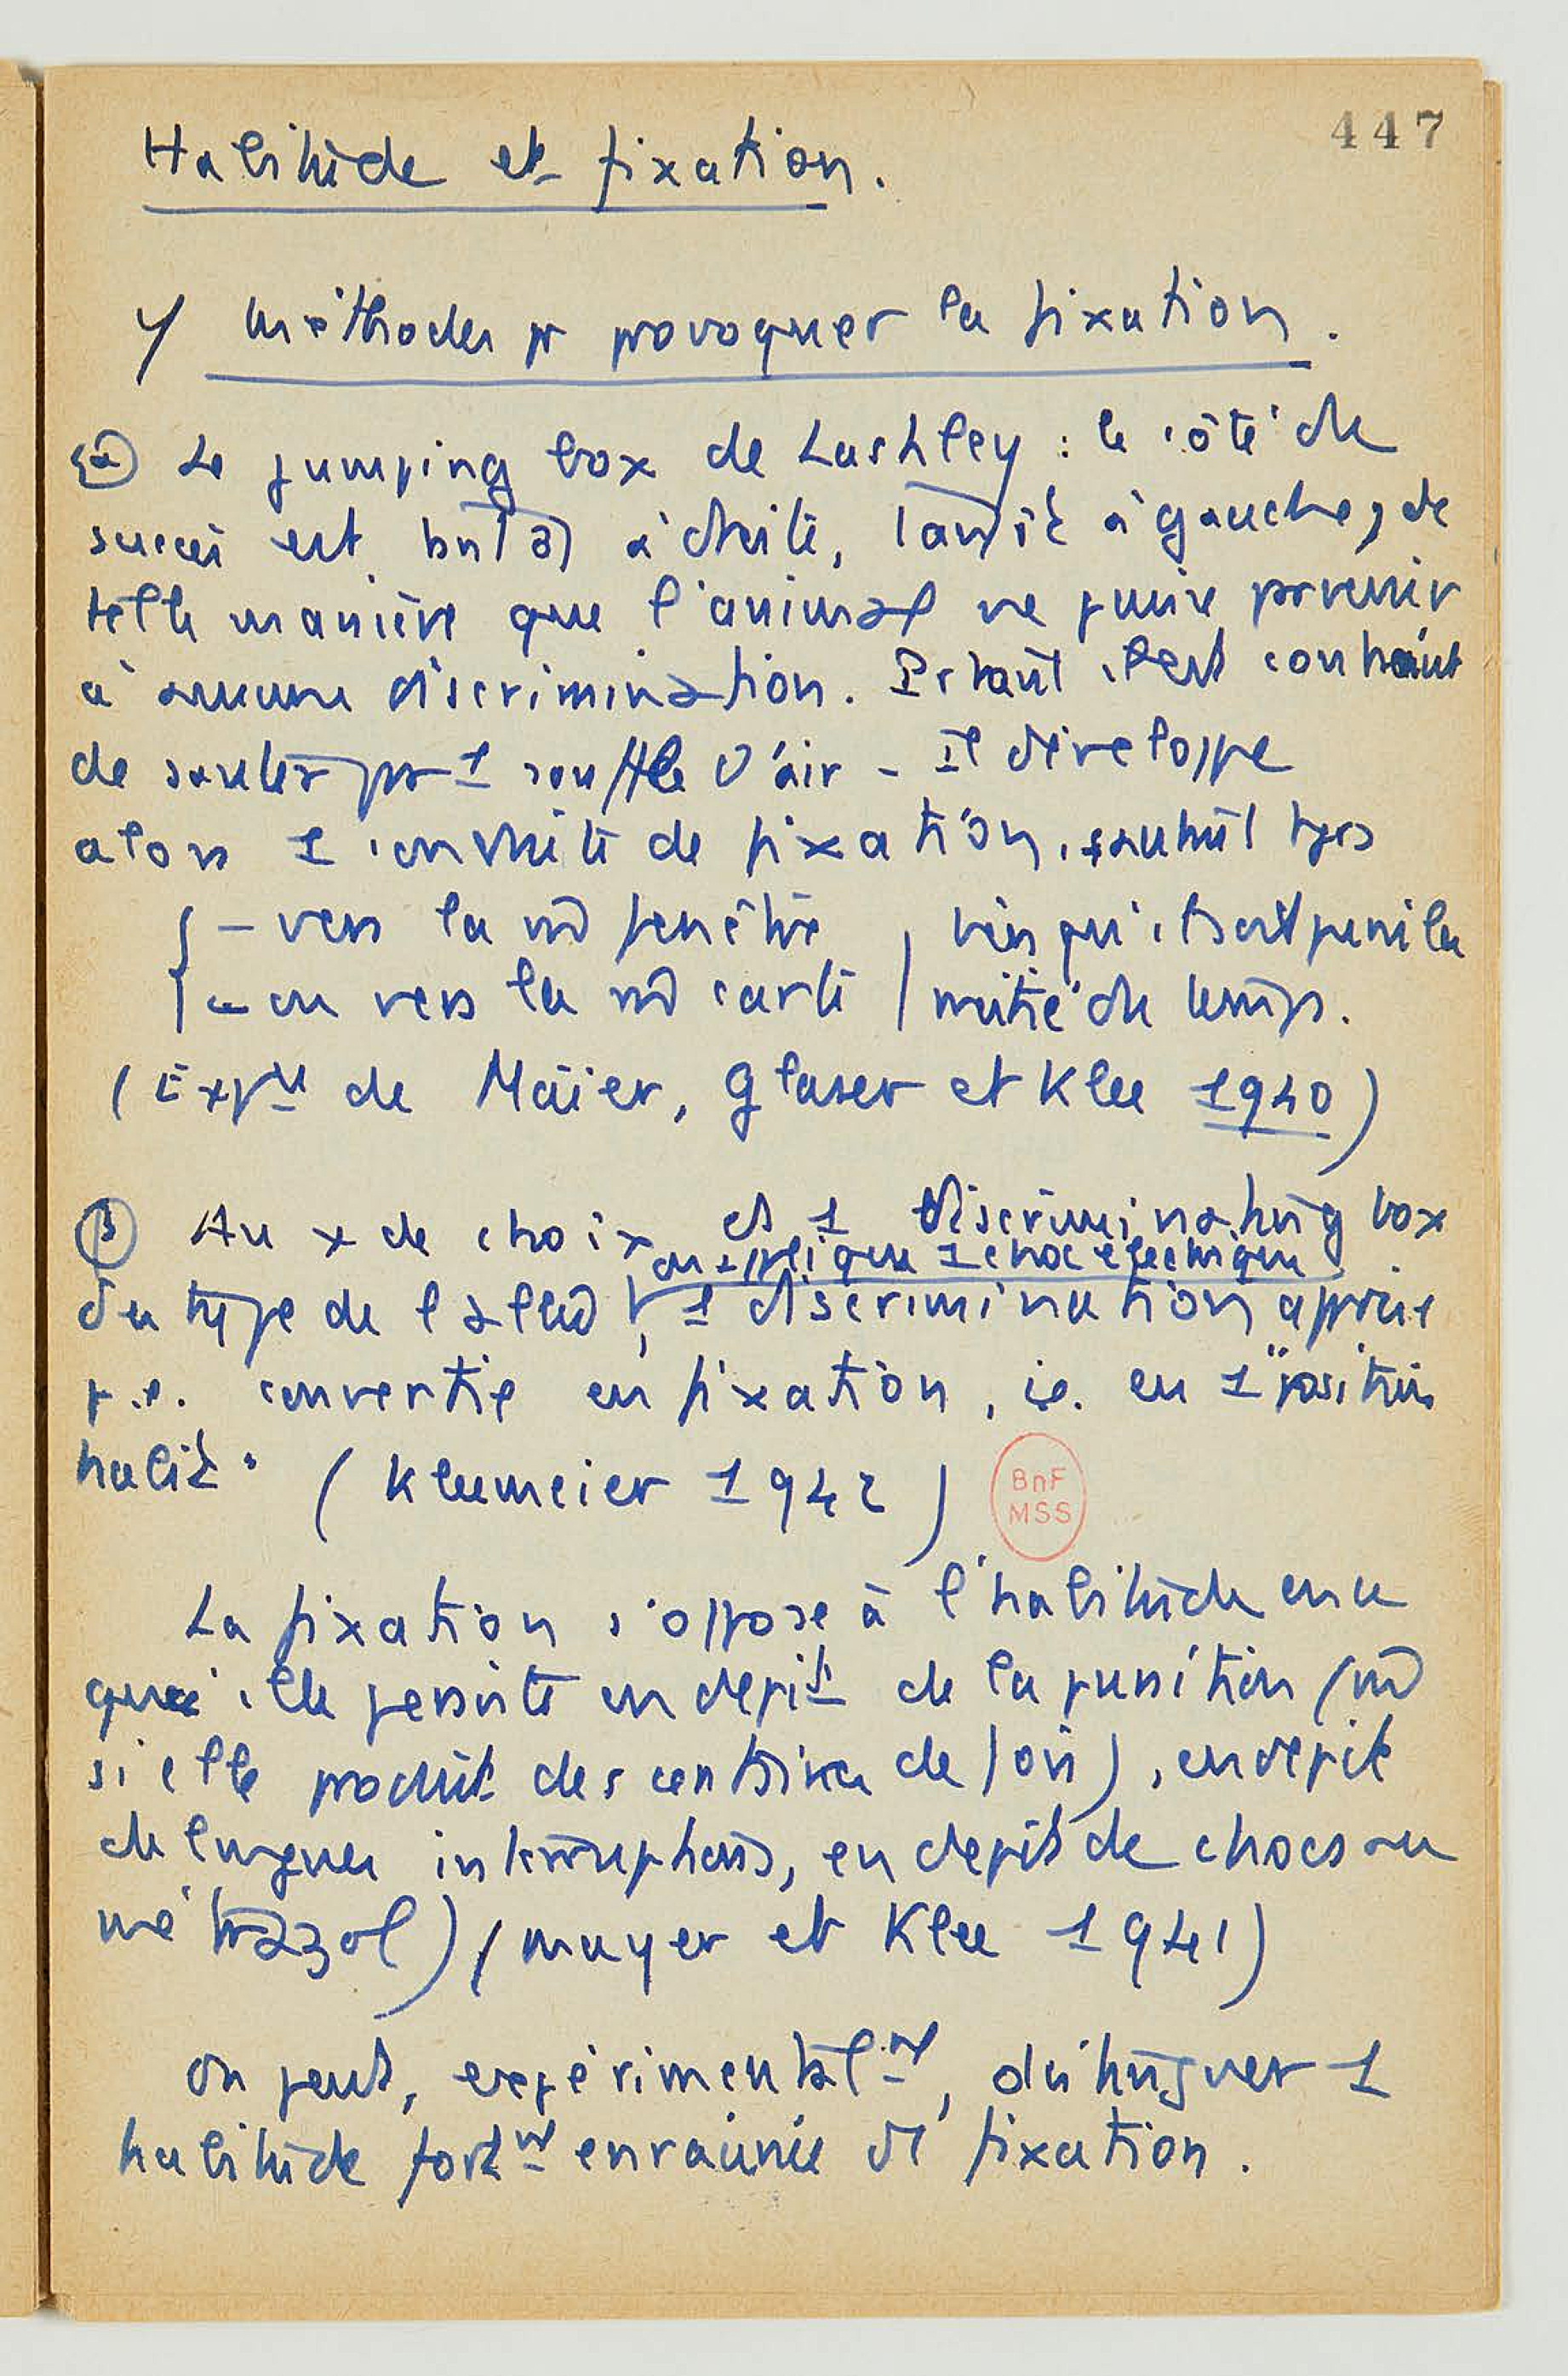 447
Habitude et fixation.
1/ Méthodes pr provoquer la fixation.
α Le jumping box de Lashley : le côté de
succès est tantôt à droite, tantôt à gauche, de
telle manière que l'animal ne puisse parvenir
à aucune discrimination. Pourtant il est contraint
de sauter par 1 souffle d'air - Il développe
alors 1 conduite de fixation, sautant tjrs
- vers la m̂ fenêtre
- ou vers la m̂ carte
bien qu'il soit puni la
moitié du temps.
(Expces de Maier, Glaser et Klee 1940)
β Au x de choix ds 1 discriminating box
on applique 1 choc électrique
du type de , 1 discrimination apprise
p.e. convertie en fixation, ie. en 1 "position
habit" (Kleemeier 1942)
BnF
MSS
La fixation s'oppose à l'habitude en ce
que elle persiste en dépit de la punition (m̂
si elle produit des de ), en dépit
de longues interruptions, en dépit de chocs au
métrazol) (Mayer et Klee 1941)
On peut, expérimentalmt, distinguer 1
habitude fortmt enracinée d'1 fixation.